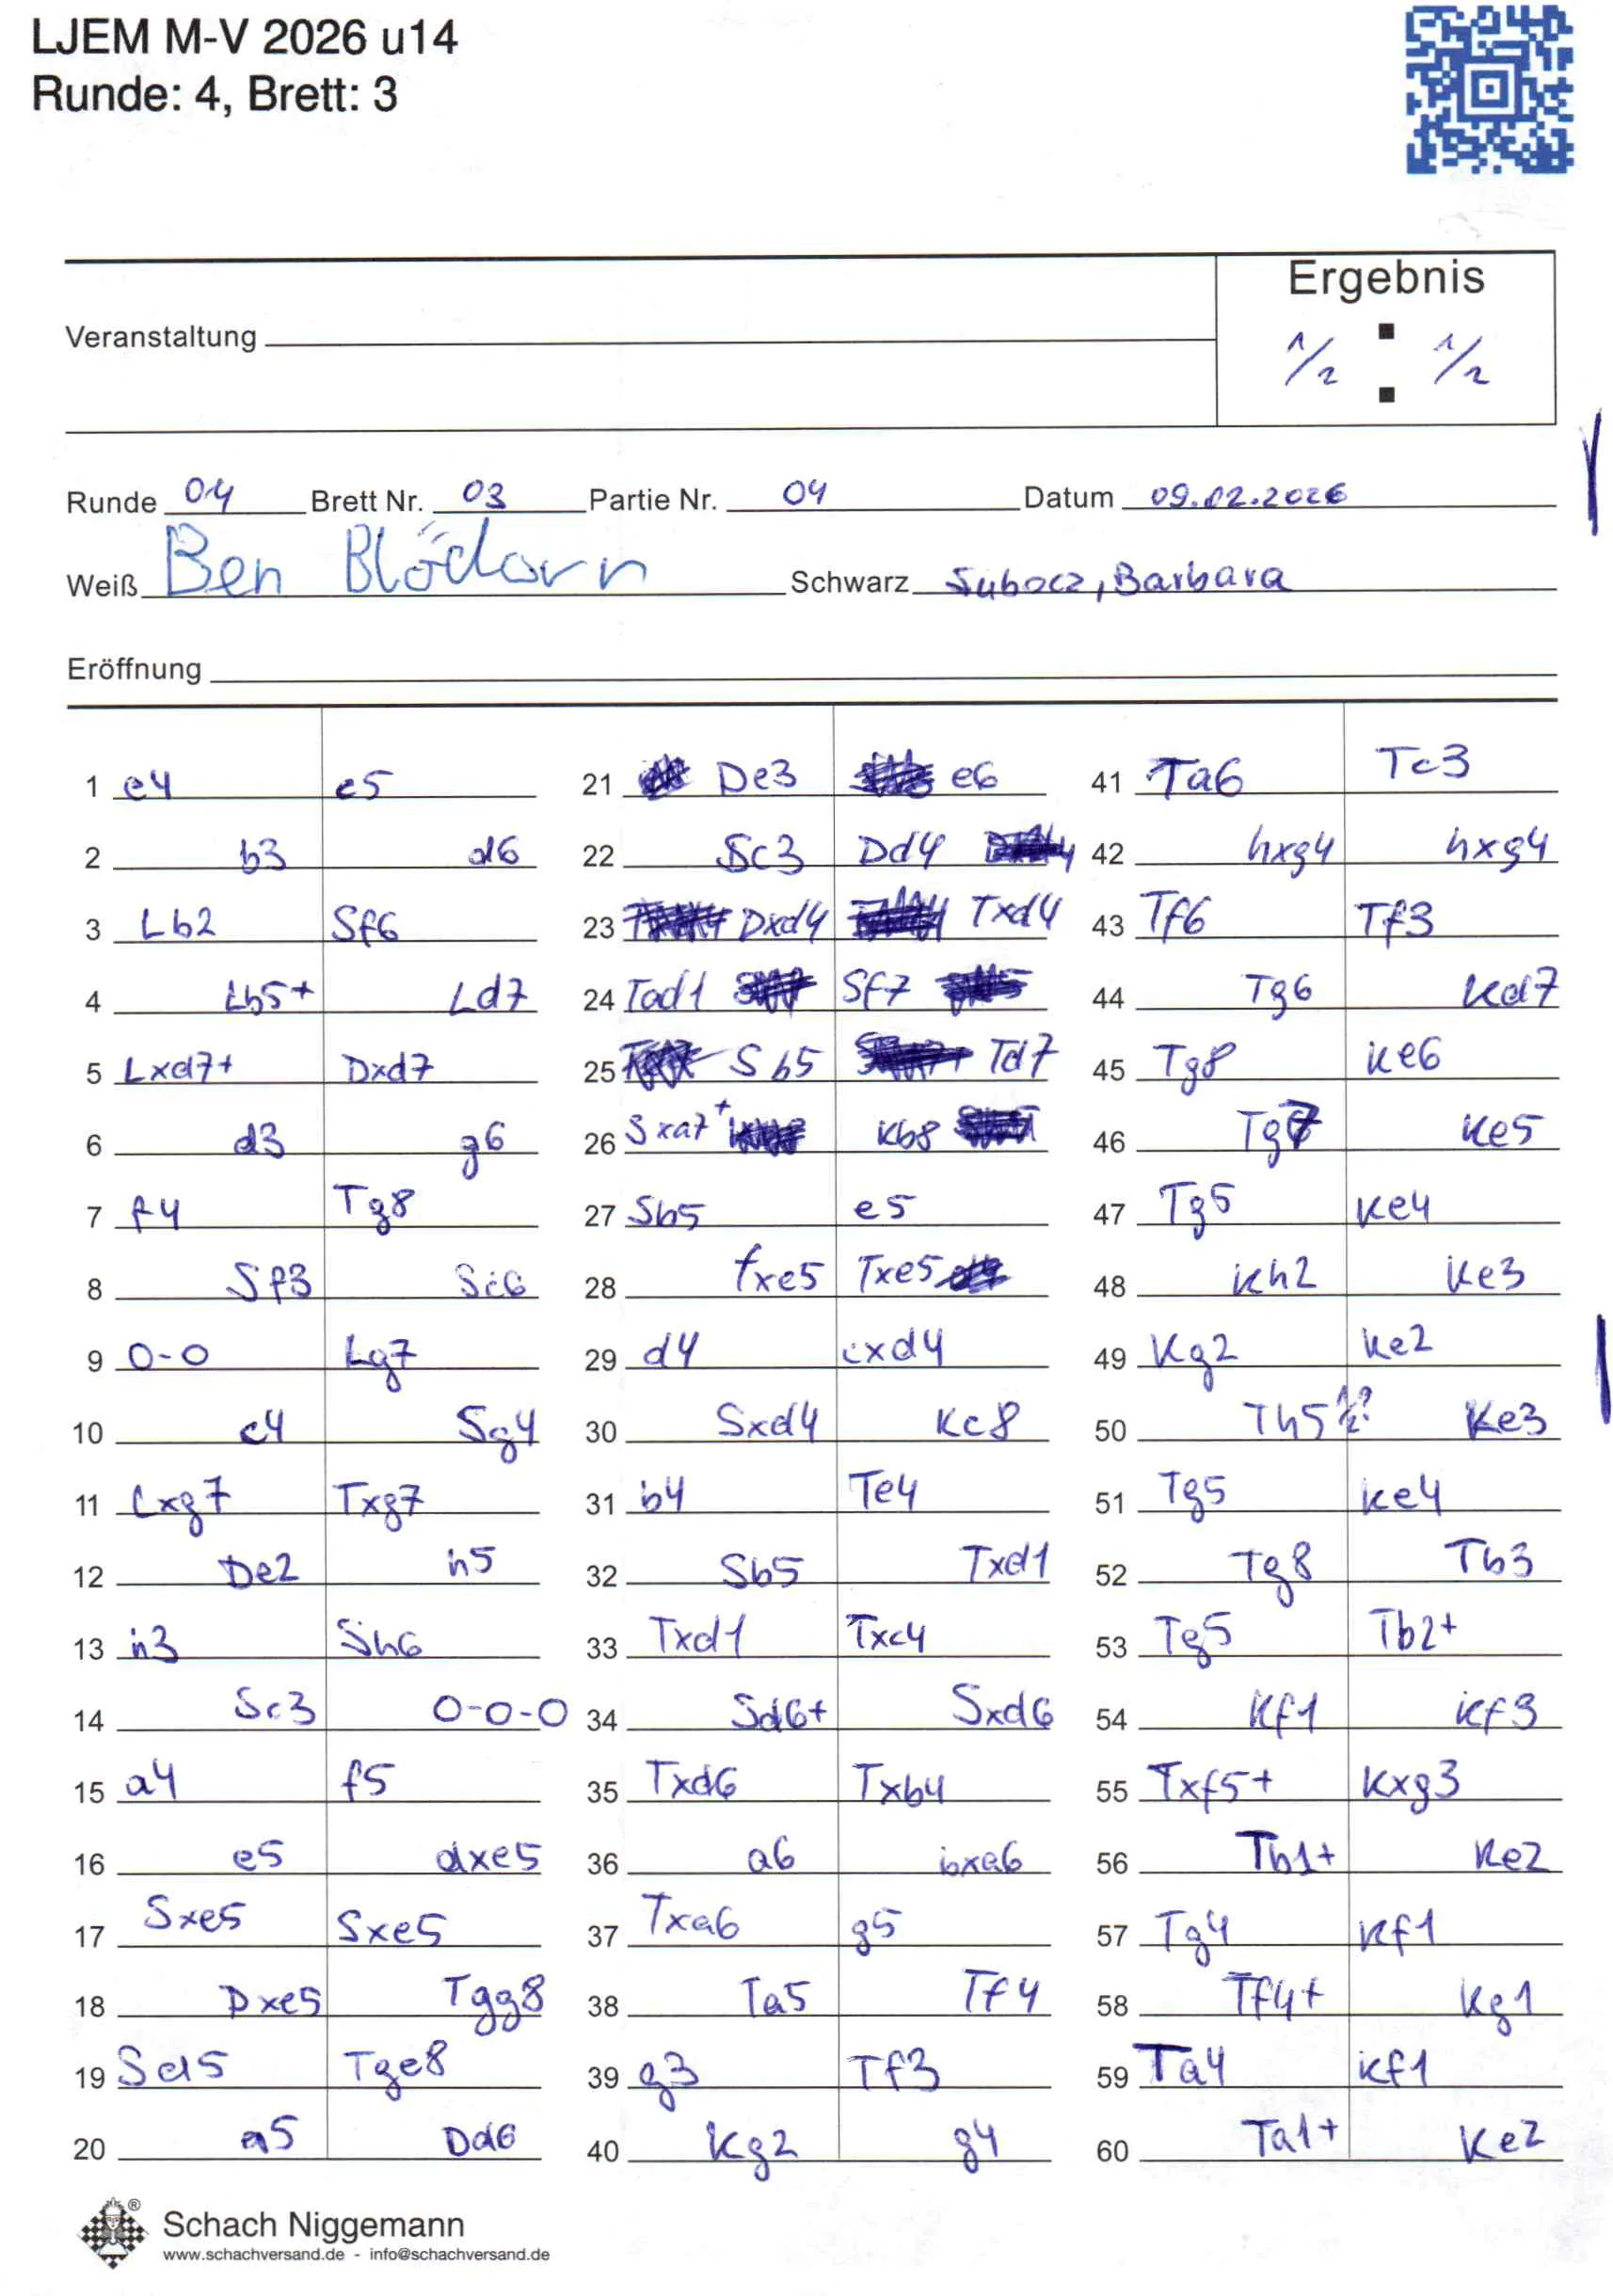 LJEM M-V 2026 u14
Runde: 4, Brett: 3
Ergebnis
Veranstaltung
1/2 : 1/2
Runde 04 Brett Nr. 03 Partie Nr. 04 Datum 09.02.2026
Weiß Ben Blödorn Schwarz Subocz, Barbara
Eröffnung
1 e4 e5
2 b3 d6
3 Lb2 Sf6
4 Lb5+ Ld7
5 Lxd7+ Dxd7
6 d3 g6
7 f4 Tg8
8 Sf3 Sc6
9 0-0 Lg7
10 c4 Sg4
11 Lxg7 Txg7
12 De2 h5
13 h3 Sh6
14 Sc3 0-0-0
15 a4 f5
16 e5 dxe5
17 Sxe5 Sxe5
18 Dxe5 Tgg8
19 Sd5 Tge8
20 a5 Dd6
21 De3 e6
22 Sc3 Dd4
23 Dxd4 Txd4
24 Tad1 Sf7
25 Sb5 Td7
26 Sxa7+ Kb8
27 Sb5 e5
28 fxe5 Txe5
29 d4 cxd4
30 Sxd4 Kc8
31 b4 Te4
32 Sb5 Txd1
33 Txd1 Txc4
34 Sd6+ Sxd6
35 Txd6 Txb4
36 a6 bxa6
37 Txa6 g5
38 Ta5 Tf4
39 g3 Tf3
40 Kg2 g4
41 Ta6 Tc3
42 hxg4 hxg4
43 Tf6 Tf3
44 Tg6 Kd7
45 Tg8 Ke6
46 Tg7 Ke5
47 Tg5 Ke4
48 Kh2 Ke3
49 Kg2 Ke2
50 Th5 1/2? Ke3
51 Tg5 Ke4
52 Tg8 Tb3
53 Tg5 Tb2+
54 Kf1 Kf3
55 Txf5+ Kxg3
56 Tb1+ Ke2
57 Tg4 Kf1
58 Tf4+ Kg1
59 Ta4 Kf1
60 Ta1+ Ke2
Schach Niggemann
www.schachversand.de - info@schachversand.de